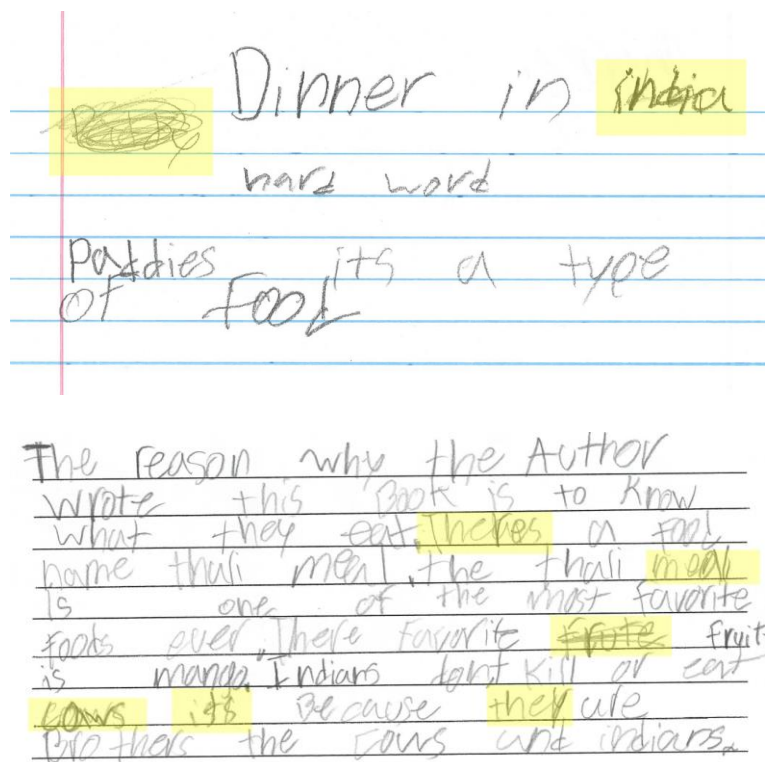 Dinner in india
hard word
Paddies its a type
of food
The reason why the Author
wrote this Book is to know
what they eat. Theres a food
name thali meal. the thali meal
is one of the most favorite
foods ever. There favorite frute fruit
is mango. Indians dont kill or eat
cows its Because they are
Brothers the cows and indians.